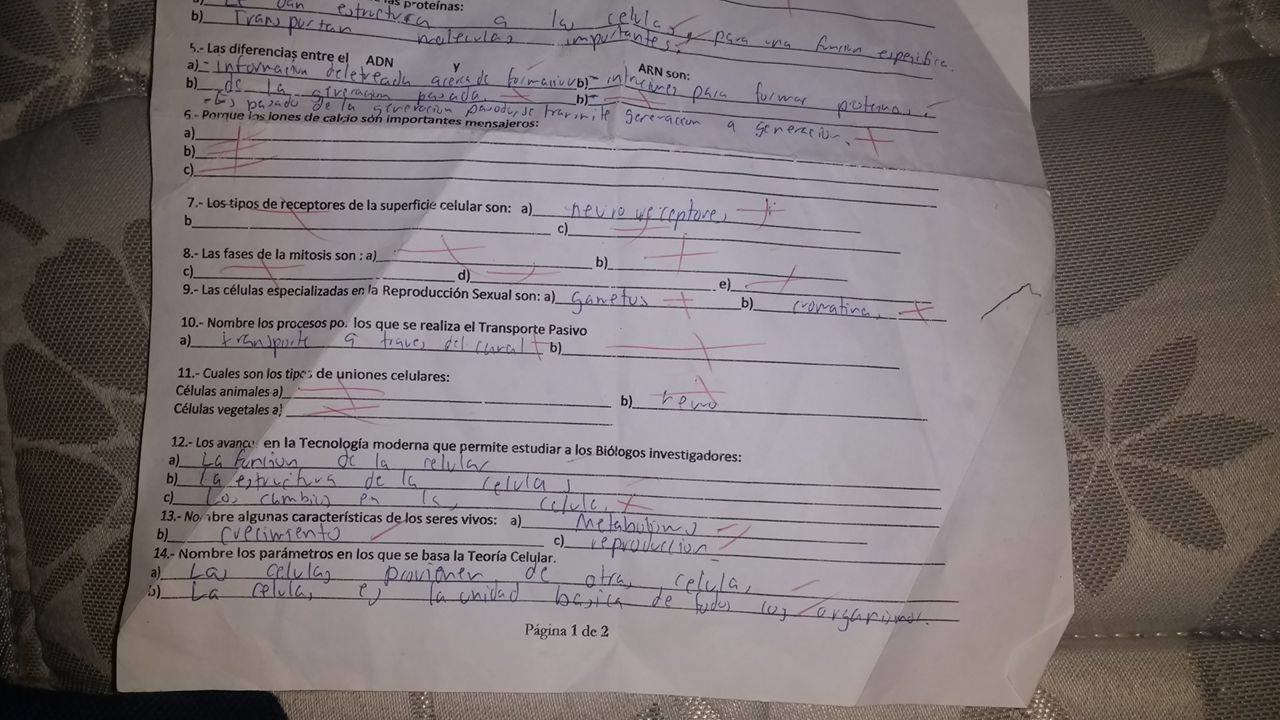 las proteínas:
a) Le dan estructura a las celulas, para una funcion especifica.
b) Transportan moleculas importantes.
5.- Las diferencias entre el ADN y ARN son:
a) - informacion deletreada acerca de formacion b) - intrucciones para formar proteinas,
b) de la generacion pasada. b) -
- Es pasado de la generacion pasada, se transmite generacion a generacion.
6.- Porque los Iones de calcio son importantes mensajeros:
a)
b)
c)
7.- Los tipos de receptores de la superficie celular son: a) neuro receptores
b c)
8.- Las fases de la mitosis son : a) b)
c) d) e)
9.- Las células especializadas en la Reproducción Sexual son: a) gametos b) cromatina,
10.- Nombre los procesos por los que se realiza el Transporte Pasivo
a) transporte a traves del canal b)
11.- Cuales son los tipos de uniones celulares:
Células animales a) b) neuro
Células vegetales a)
12.- Los avance en la Tecnología moderna que permite estudiar a los Biólogos investigadores:
a) La funcion de la celular
b) La estructura de la celulas
c) Los cambios en las celula.
13.- Nombre algunas características de los seres vivos: a) Metabolismo
b) Crecimiento c) reproduccion
14.- Nombre los parámetros en los que se basa la Teoría Celular.
a) Las celulas provienen de otras celulas,
b) La celulas es la unidad basica de todos los organismos.
Página 1 de 2